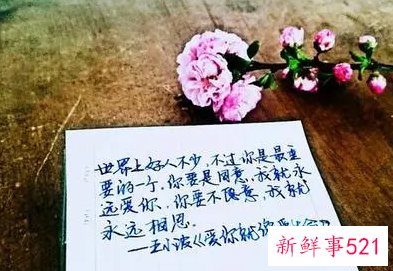 世界上好人不少,不过你是最重
要的一个,你要是同意,我就永
远爱你、你要不愿意,我就
永远相思。
——王小波《爱你就像爱生命》
新鲜事521